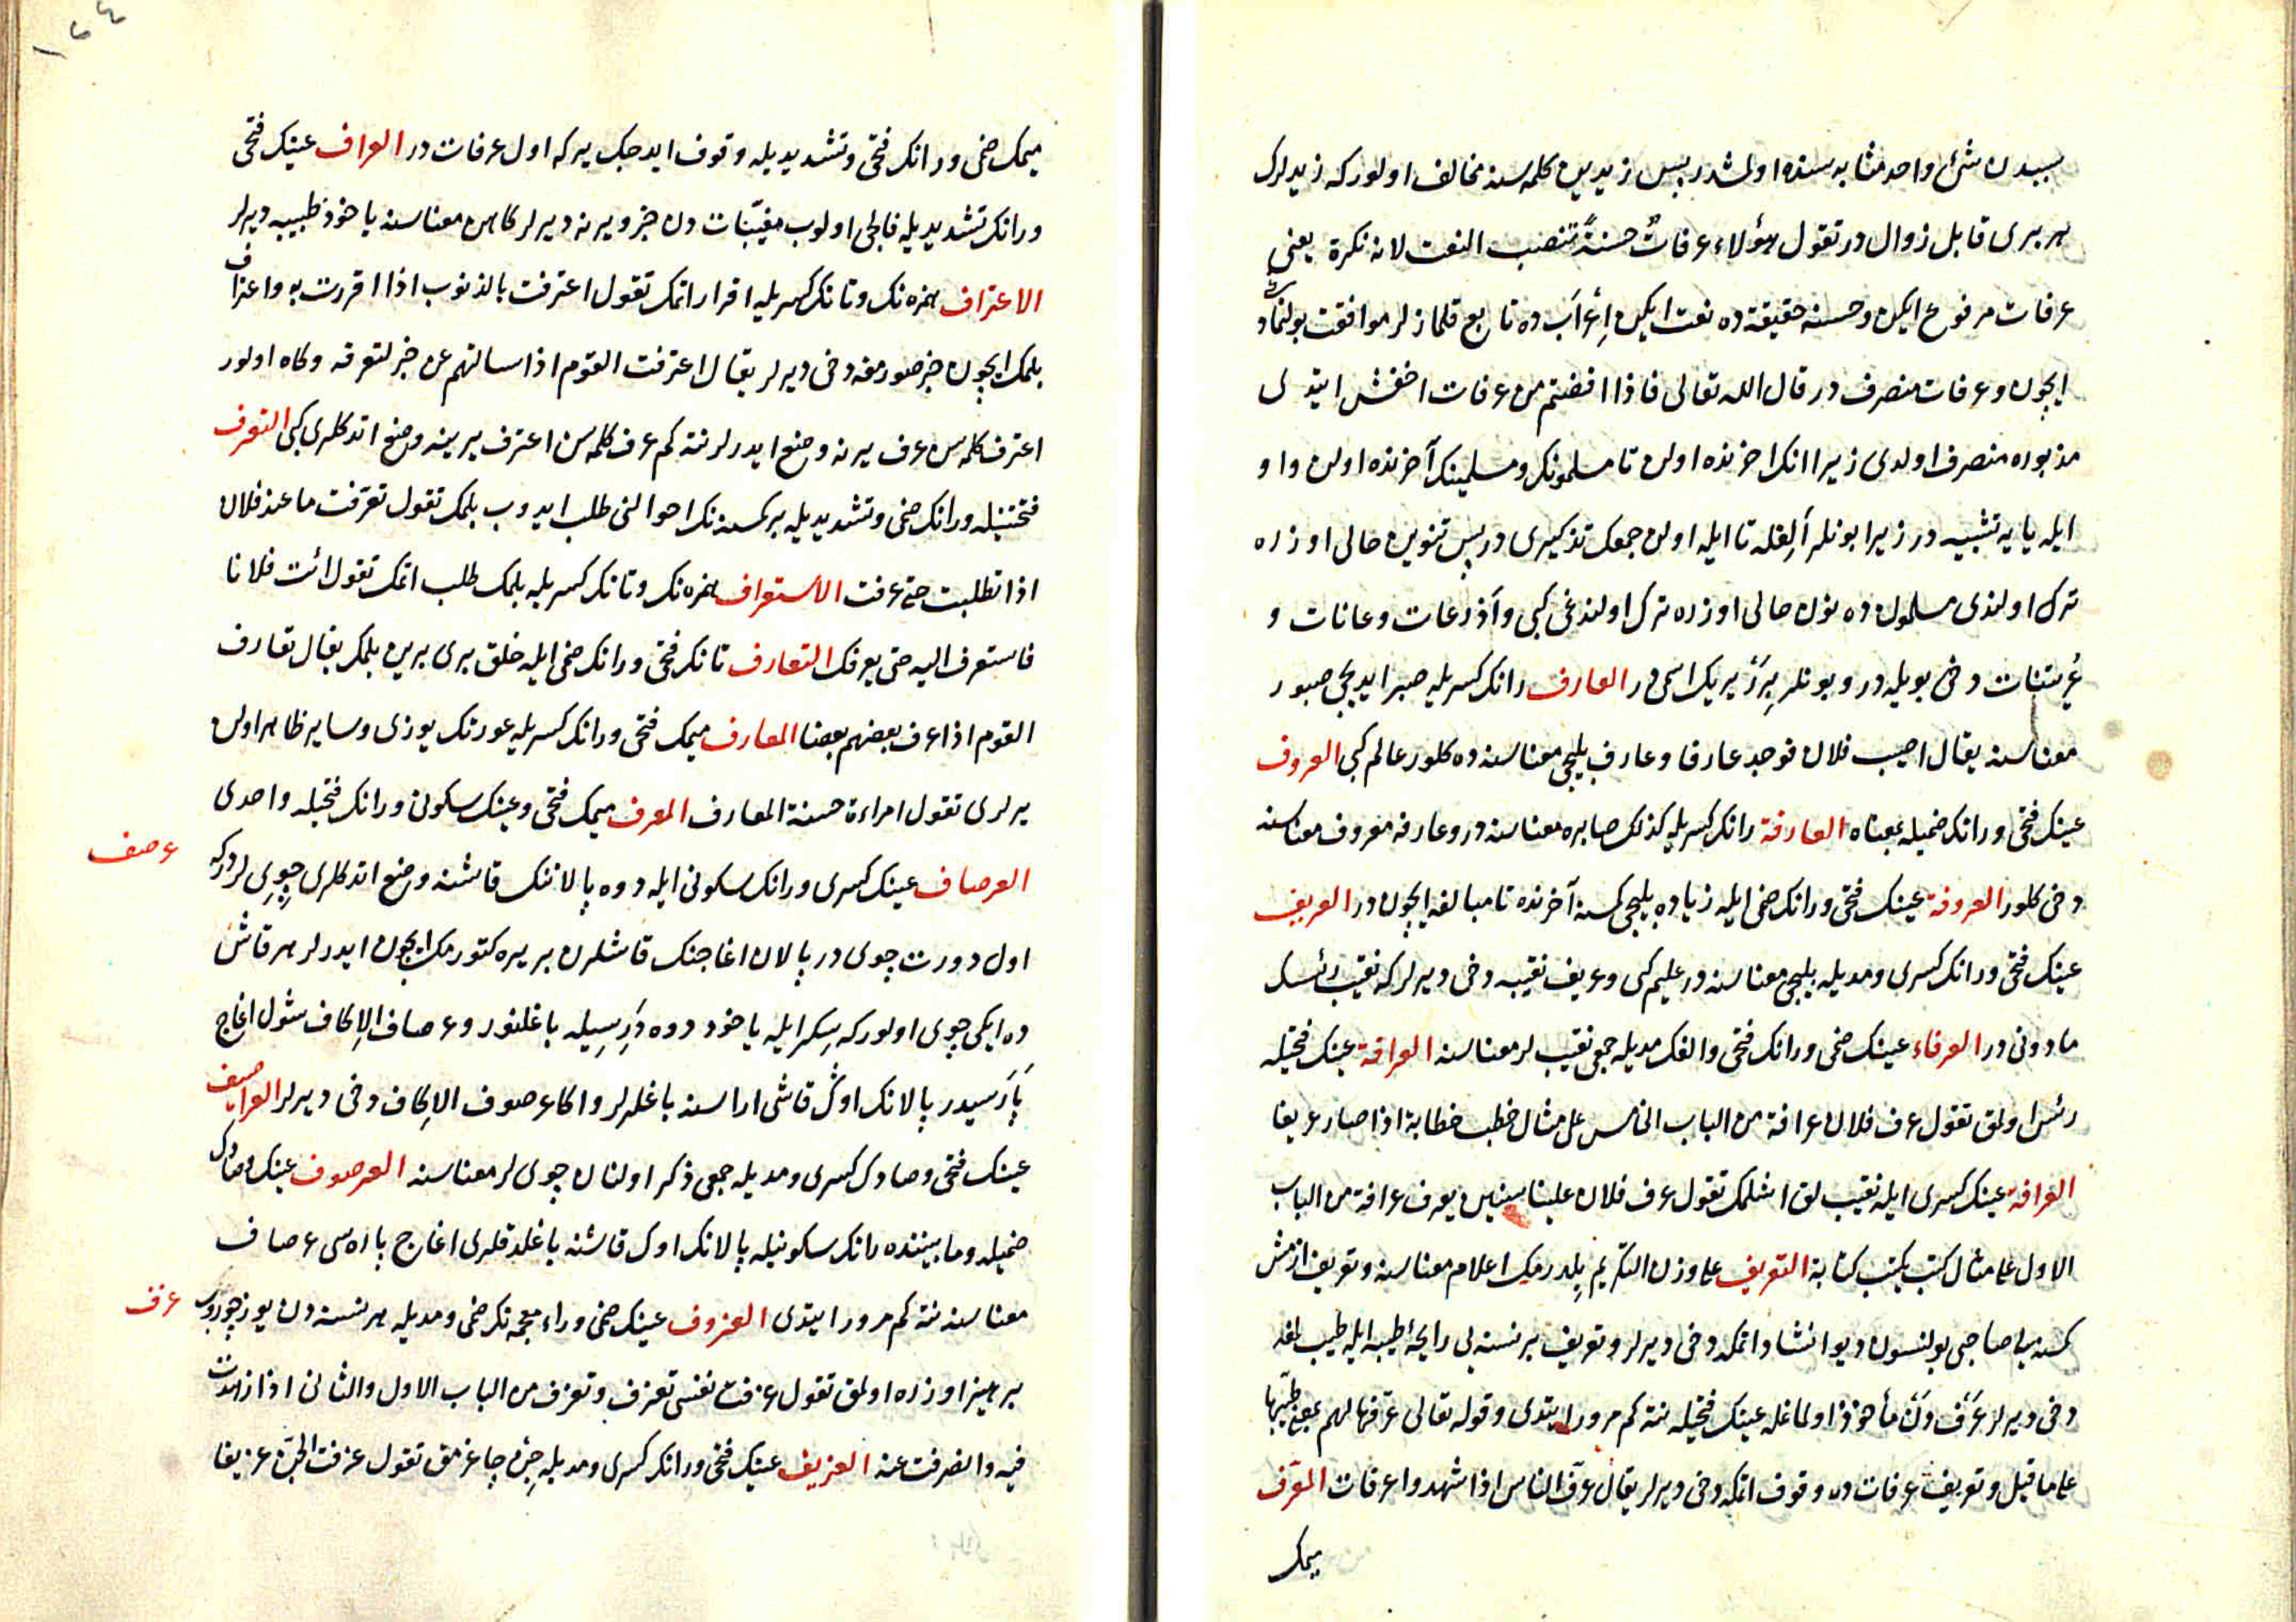 سببدن شئ واحد مثابه سنده اولمشدر پس زیدین کلمه سنه مخالف اولور که زیدلرک
هر بری قابل زوال در تقول هؤلاء عرفاتٌ حسنةً تنصب النعت لانه نکرة یعنی
عرفات مرفوع ایکن و حسنه حقیقة ده نعت ایکن اعرابده تابع قلمازلر موافقت بولنمادوغی
ایچون و عرفات منصرف در قال الله تعالی فاذا افضتم من عرفات اخفش ایتدی
مذبوره منصرف اولدی زیرا انک اخرنده اولن تا مسلمونک و مسلمینک آخرنده اولن واو
ایله یایه تشبیه در زیرا بونلر الفله تا ایله اولن جمعک تذکیری در پس تنوین حالی اوزره
ترک اولندی مسلمون ده نون حالی اوزره ترک اولندغی کبی و اذرعات و عانات و
عریتنات دخی بویله در و بونلر برر یریک اسمی در العارف رانک کسریله صبر ایدیجی صبور
معناسنه یقال اصیب فلان فوجد عارفا و عارف بلیجی معناسنه ده کلور عالم کبی العروف
عینک فتحی و رانک ضمیله بمعناه العارفة رانک کسریله کذلک صابره معناسنه در و عارفه معروف معناسنه
دخی کلور العروفة عینک فتحی و رانک ضمی ایله زیاده بلیجی کمسه آخرنده تا مبالغه ایچون در العریف
عینک فتحی و رانک کسری و مدیله بلیجی معناسنه در علیم کبی و عریف نقیبه دخی دیرلر که نقیب رئیسک
مادونی در العرفاء عینک ضمی و رانک فتحی و الفک مدیله جمعی نقیب لر معناسنه العرافة عینک فتحیله
رئیس اولمق تقول عرف فلان عرافة من الباب الخامس علی مثال خطب خطابة اذا صار عریفا
العرافة عینک کسری ایله نقیب لق اشلمک تقول عرف فلان علینا سنین یعرف عرافة من الباب
الاول علی مثال کتب یکتب کتابة التعریف علی وزن التکریم بلدرمک اعلام معناسنه و تعریف ازمش
کمسنه یه صاحبی بولنسون دیو انشاد اتمکه دخی دیرلر و تعریف بر نسنه یی رایحۀ طیبه ایله طیب لغه
دخی دیرلر عَرَف دَن مأخوذ اولماغله عینک فتحیله نته کم مرور ایتدی و قوله تعالی عرّفها لهم بمعنی طیّبها
علی ما قیل و تعریف عرفات ده وقوف اتمکه دخی دیرلر یقال عرّف الناس اذا شهدوا عرفات المعرّف
میمک
میمک ضمی و رانک فتحی و تشدیدیله وقوف ایدجک یر که اول عرفات در العراف عینک فتحی
و رانک تشدیدیله فالجی اولوب مغیّبات دن خبر ویرنه دیرلر کاهن معناسنه یاخود طبیبه دیرلر
الاعتراف همزه نک و تانک کسریله اقرار اتمک تقول اعترفت بالذنوب اذا اقررت به و اعتراف
بلمک ایچون خبر صورمغه دخی دیرلر یقال اعترفت القوم اذا سالتهم عن خبر لتعرفه و کاه اولور
اعترف کلمه سن عرف یرنه وضع ایدرلر نته کم عرف کلمه سن اعترف یرینه وضع اتدکلری کبی التعرف
فتحتینله و رانک ضمی و تشدیدیله بر کمسنه نک احوالنی طلب ایدوب بلمک تقول تعرّفت ما عند فلان
اذا تطلبت حتی عرفت الاستعراف همزه نک و تانک کسریله بلمک طلب اتمک تقول ائت فلانا
فاستعرف الیه حتی یعرفک التعارف تانک فتحی و رانک ضمی ایله خلق بری برین بلمک یقال تعارف
القوم اذا عرف بعضهم بعضا المعارف میمک فتحی و رانک کسریله عورتک یوزی و سایر ظاهر اولن
یرلری تقول امراءة حسنة المعارف المعرف میمک فتحی و عینک سکونی و رانک فتحیله واحدی
عرصف
العرصاف عینک کسری و رانک سکونی ایله دوه پالاننک قاشنه وضع اتدکلری چوی لردر که
اول دورت چوی در پالان اغاجنک قاشلرن بر یره کتورمک ایچون ایدرلر هر قاش
ده ایکی چوی اولور که سکر ایله یاخود دوه دریسیله باغلنور و عرصاف الاکاف شول اغاج
پاره سیدر پالانک اوک قاشی اراسنه باغلرلر و اکا عرصوف الاکاف دخی دیرلر العراصیف
عینک فتحی و صادک کسری و مدیله جمعی ذکر اولنان چوی لر معناسنه العرصوف عینک و صادک
ضمیله و مابیننده رانک سکونیله پالانک اوک قاشنه باغلدقلری اغاج پاره سی عرصاف
معناسنه نته کم مرور ایتدی العزوف عینک ضمی و زاء معجمه نک ضمی و مدیله هر نسنه دن یوز چوروب
عزف
پرهیز اوزره اولمق تقول عزفت نفسی تعزف و تعزف من الباب الاول و الثانی اذا زهدت
فیه و انصرفت عنه العزیف عینک فتحی و زانک کسری و مدیله جن چاغرمق تقول عزفت الجن عزیفا